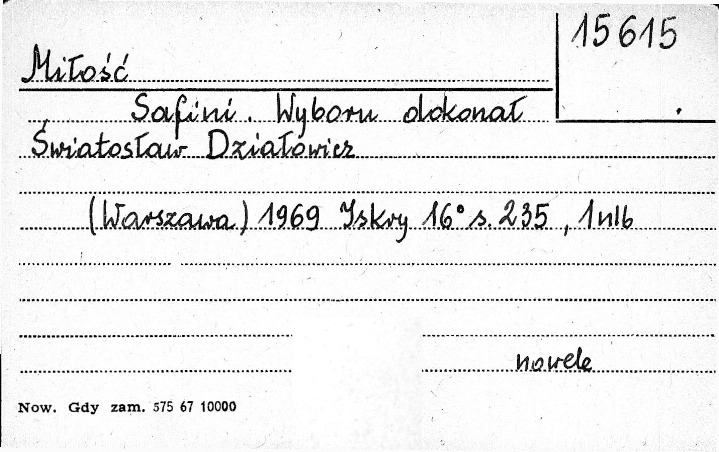 15615
Miłość
Safini. Wyboru dokonał
Światosław Działowicz
(Warszawa) 1969 Iskry 16° s. 235, 1 nlb
nowele
Now. Gdy zam. 575 67 10000